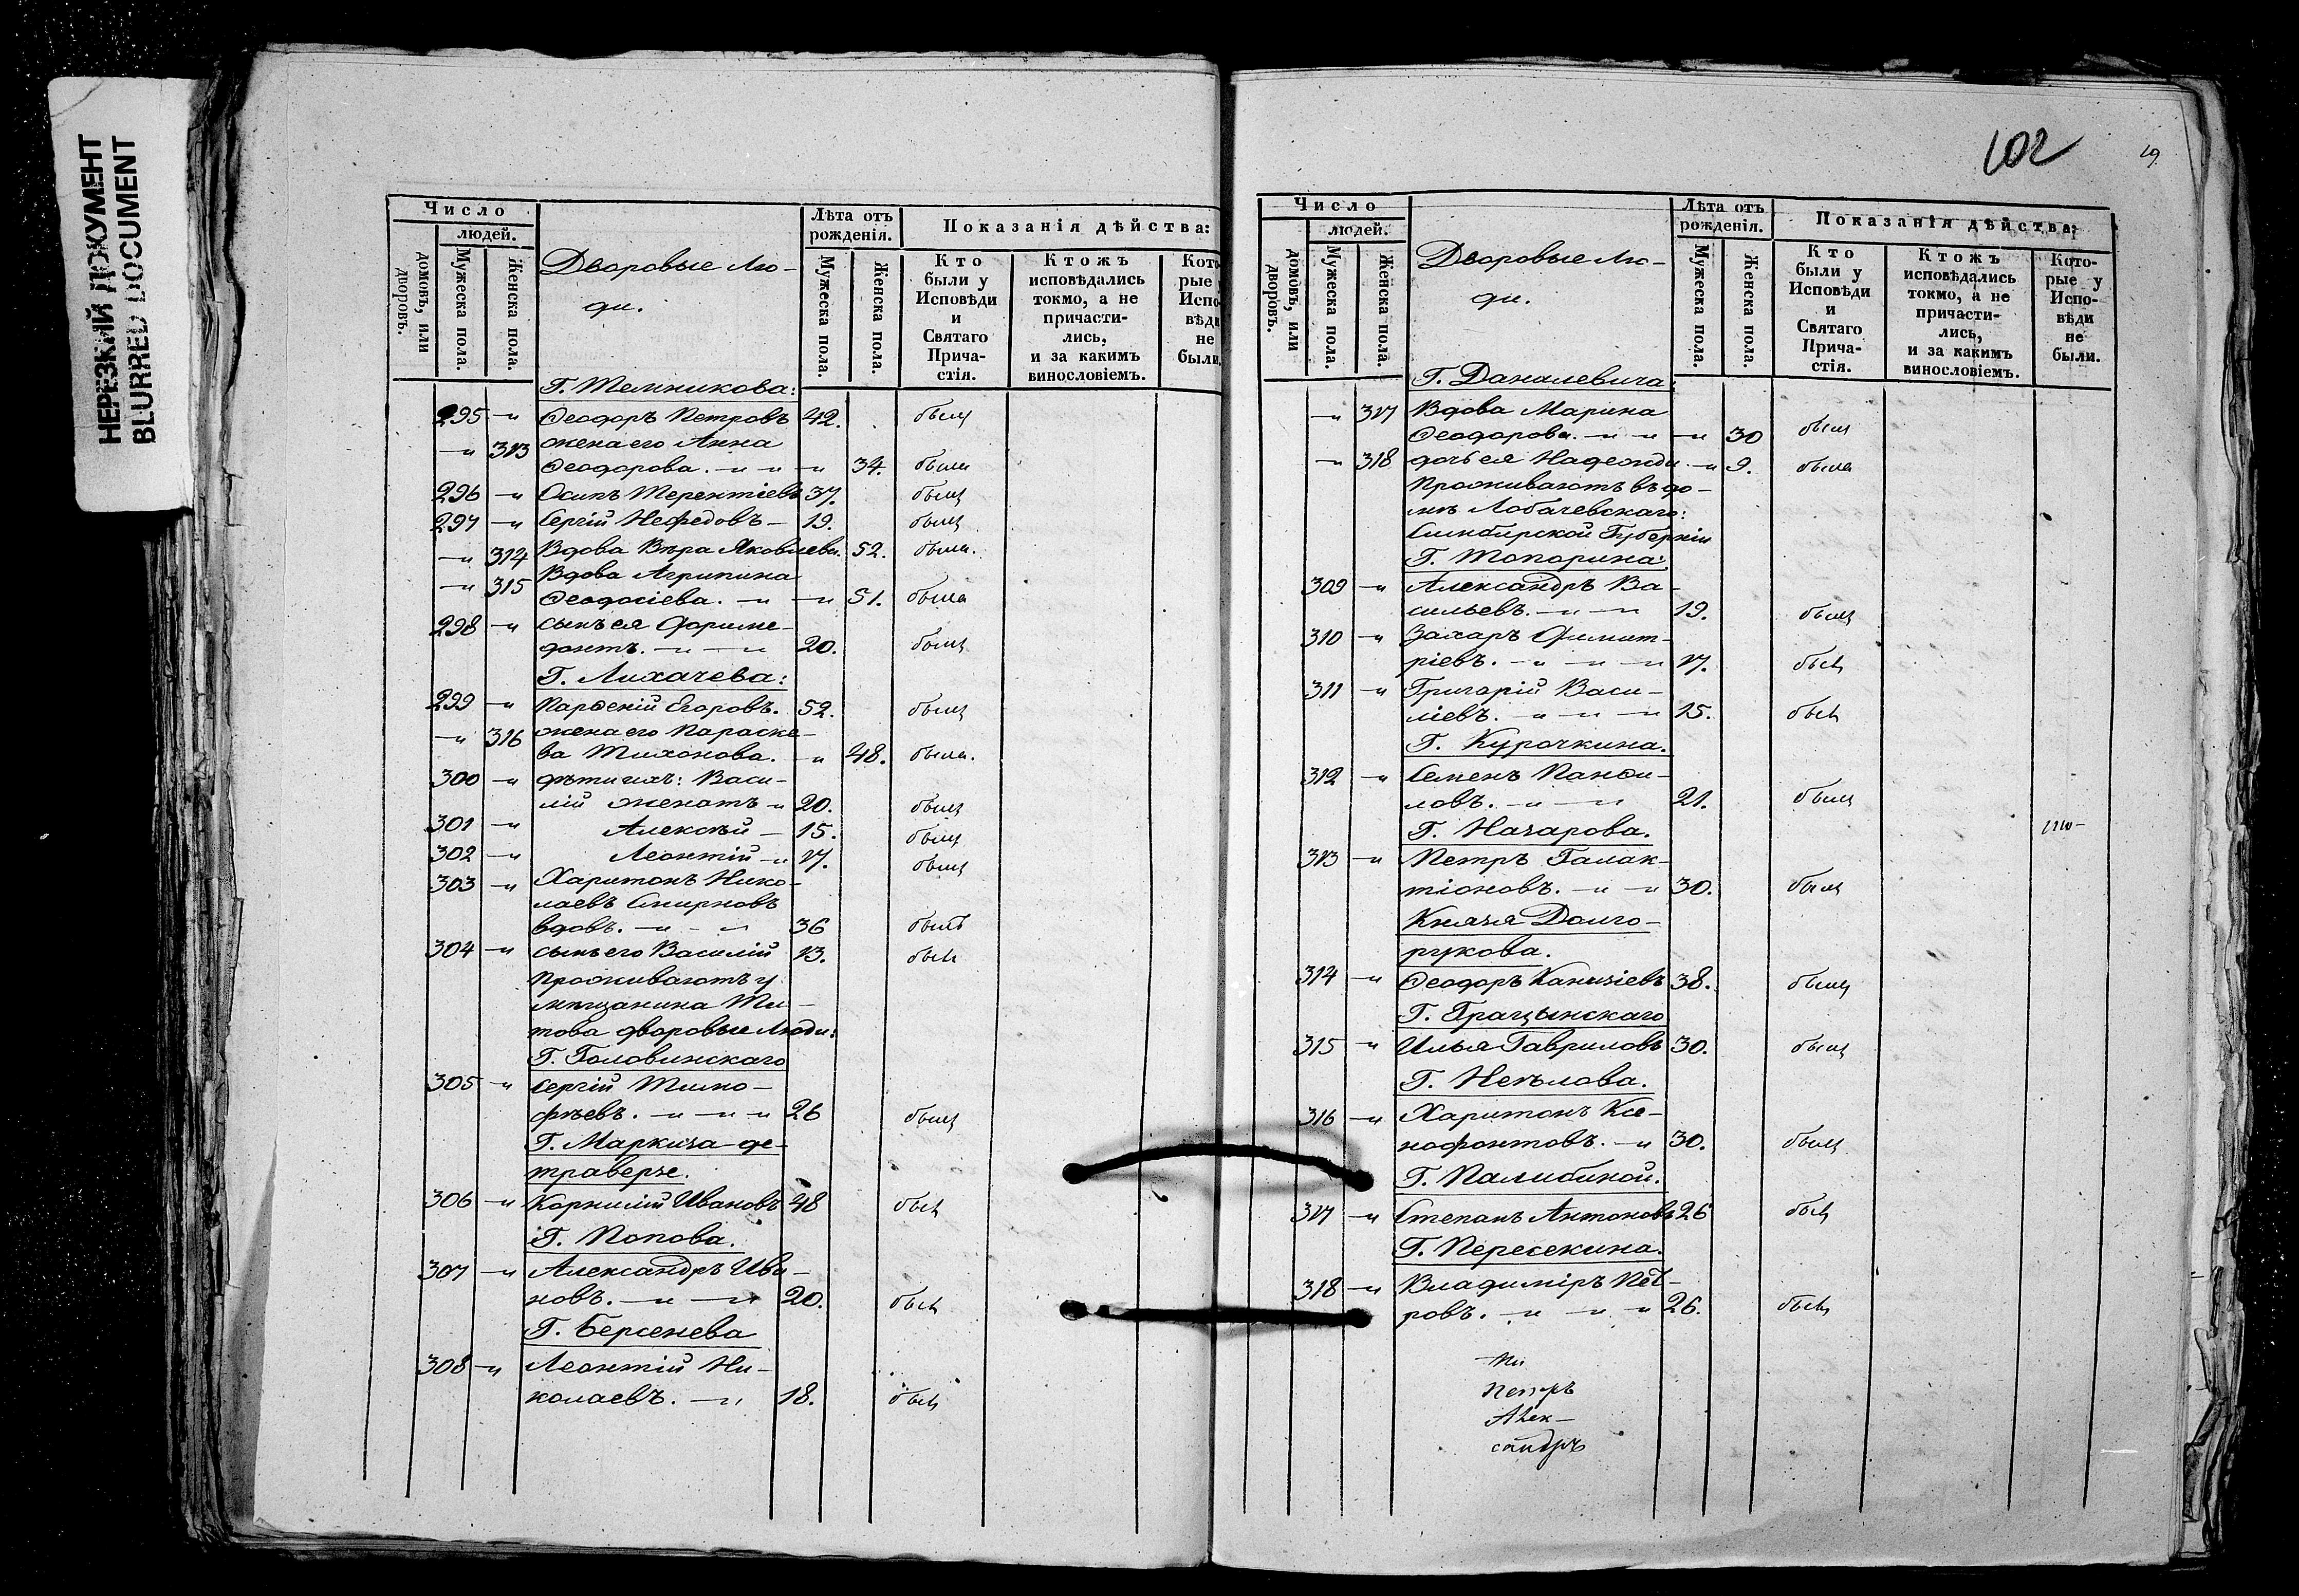 НЕРЕЗКИЙ ДОКУМЕНТ
BLURRED DOCUMENT
Число
людей.
домовъ, или дворовъ.
Мужеска пола.
Женска пола.
Дворовые Лю-
ди.
Лѣта отъ рожденія.
Мужеска пола.
Женска пола.
Показанія дѣйства:
Кто были у Исповѣди и Святаго Причастія.
Ктожъ исповѣдались токмо, а не причастились, и за какимъ винословіемъ.
Кото
рые у
Испо
вѣди
не
были.
Г. Темникова:
295 -"- Ѳеодоръ Петровъ 42. былъ
-"- 313 жена его Анна
Ѳеодорова. -"- -"- 34. была
296 -"- Осипъ Терентіевъ 37. былъ
297 -"- Сергій Нефедовъ - 19. былъ
-"- 314 Вдова Вѣра Яковлева. 52. была.
-"- 315 Вдова Агрипина
Ѳеодосіева. -"- -"- 51. была
298 -"- сынъ ея Дориме-
донтъ. -"- -"- 20. былъ
Г. Лихачева:
299 -"- Парѳеній Егоровъ. 52. былъ
-"- 316 жена его Параске-
ва Тихонова. -"- 48. была.
300 -"- дѣти ихъ: Васи-
лій женатъ -"- 20. былъ
301 -"- Алексѣй - 15. былъ
302 -"- Леонтій -"- 17. былъ
303 -"- Харитонъ Нико-
лаевъ Смирновъ
вдовъ. -"- -"- 36 былъ
304 -"- сынъ его Василій 13. былъ
Проживаютъ у
мѣщанина Ти-
това дворовые Люди:
Г. Головинскаго
305 -"- Сергій Тимо-
фѣевъ. -"- -"- -"- 26 былъ
Г. Маркиза-де-
траверзе.
306 -"- Корнилій Ивановъ 48 былъ
Г. Попова.
307 -"- Александръ Ива-
новъ. -"- -"- 20. былъ
Г. Берсенева
308 -"- Леонтій Ни-
колаевъ. -"- 18. былъ
102
19
Число
людей.
домовъ, или дворовъ.
Мужеска пола.
Женска пола.
Дворовые Лю-
ди.
Лѣта отъ рожденія.
Мужеска пола.
Женска пола.
Показанія дѣйства:
Кто были у Исповѣди и Святаго Причастія.
Ктожъ исповѣдались токмо, а не причастились, и за какимъ винословіемъ.
Которые у Исповѣди не были.
Г. Данилевича:
-"- 317 Вдова Марина
Ѳеодорова. -"- -"- -"- 30 была
-"- 318 дочь ея Надежда -"- 9. была
Проживаютъ въ до-
мѣ Лобачевскаго:
Симбирской Губерніи
Г. Топорина:
309 -"- Александръ Ва-
сильевъ. -"- -"- 19. былъ
310 -"- Захаръ Димит-
ріевъ. -"- -"- -"- 17. былъ
311 -"- Григорій Васи-
ліевъ. -"- -"- -"- 15. былъ
Г. Курочкина.
312 -"- Семенъ Панфи-
ловъ. -"- -"- 21. былъ
Г. Назарова.
313 -"- Петръ Галак-
тіоновъ. -"- -"- 30. былъ
Князя Долго-
рукова.
314 -"- Ѳеодоръ 38. былъ
Г. Грацынскаго
315 -"- Илья Гавриловъ 30. былъ
Г. Неѣлова.
316 -"- Харитонъ Ксе-
нофонтовъ. -"- 30. былъ
Г. Палибиной.
317 -"- Степанъ Антоновъ 26 былъ
Г. Пересекина.
318 -"- Владиміръ Пет-
ровъ. -"- -"- -"- 26. былъ
Петръ
Алек-
сандръ